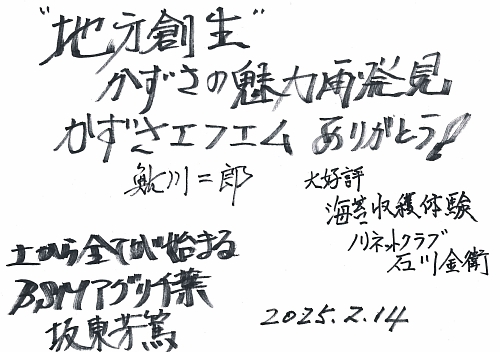 "地方創生"
かずさの魅力再発見
かずさエフエム ありがとう!
鮎川二郎
大好評
海苔収穫体験
ノリネットクラブ
石川金衛
土から全てが始まる
BSMアグリ千葉
坂東芳篤
2025.2.14